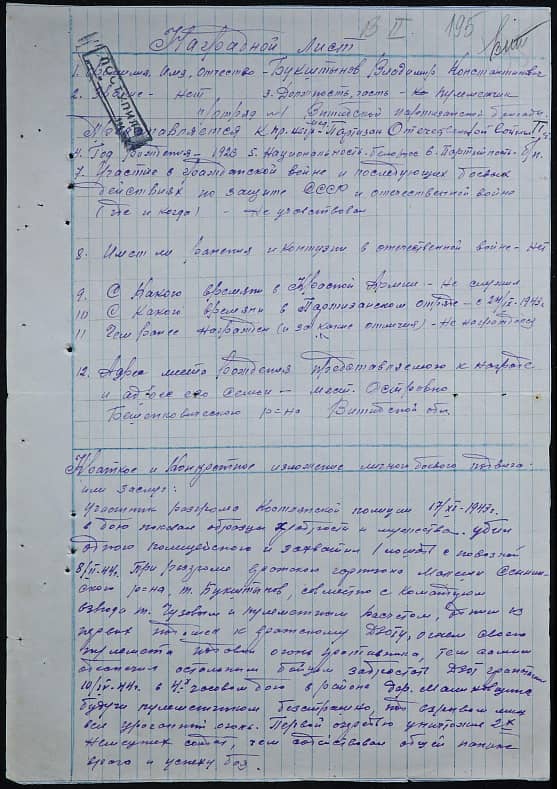 В II 195
Наградной лист
ПОСТУПИЛО
1. Фамилия, Имя, Отчество - Букштынов Владимир Константинович
2. Звание - Нет 3. Должность, часть - Пулеметчик
п/отряд Витебской партизанской бригады
Представляется к Партизан Отечественной войны II
4. Год рождения - 1923 5. Национальность - Белорус 6. Партийность - б/п.
7. Участие в гражданской войне и последующих боевых
действиях по защите СССР и отечественной войне
(где и когда) - Не участвовал
8. Имеет ли ранения и контузии в отечественной войне - Нет
9. С какого времени в Красной Армии - Не служил
10 С какого времени в Партизанском отряде - с 1943г.
11 Чем ранее награжден (и за какие отличия) - Не награжден
12. Адрес места рождения представляемого к награде
и адрес его семьи - мест. Островно
Бешенковичского р-на Витебской обл.
Краткое и конкретное изложение личного боевого подвига
или заслуг:
Участник разгрома полиции 17/XI-1943г.
в бою показал образцы храбрости и мужества. убил
одного полицейского и захватил 1 лошадь с повозкой
8/II-44г. При разгроме вражеского гарнизона
р-на, т. Букштынов, совместно с командиром
взвода т. и пулеметным расчетом, одним из
первых к вражескому Дзоту, огнем своего
пулемета огонь противника, тем самым
обеспечил остальным бойцам забросать Дзот гранатами
10/IV-44г. в 4х часовом бою в районе дер.
будучи пулеметчиком бесстрашно, под взрывом мин
вел ураганный огонь. Первой очередью уничтожил 2х
немецких солдат, чем содействовал общей панике
врага и успеху боя.